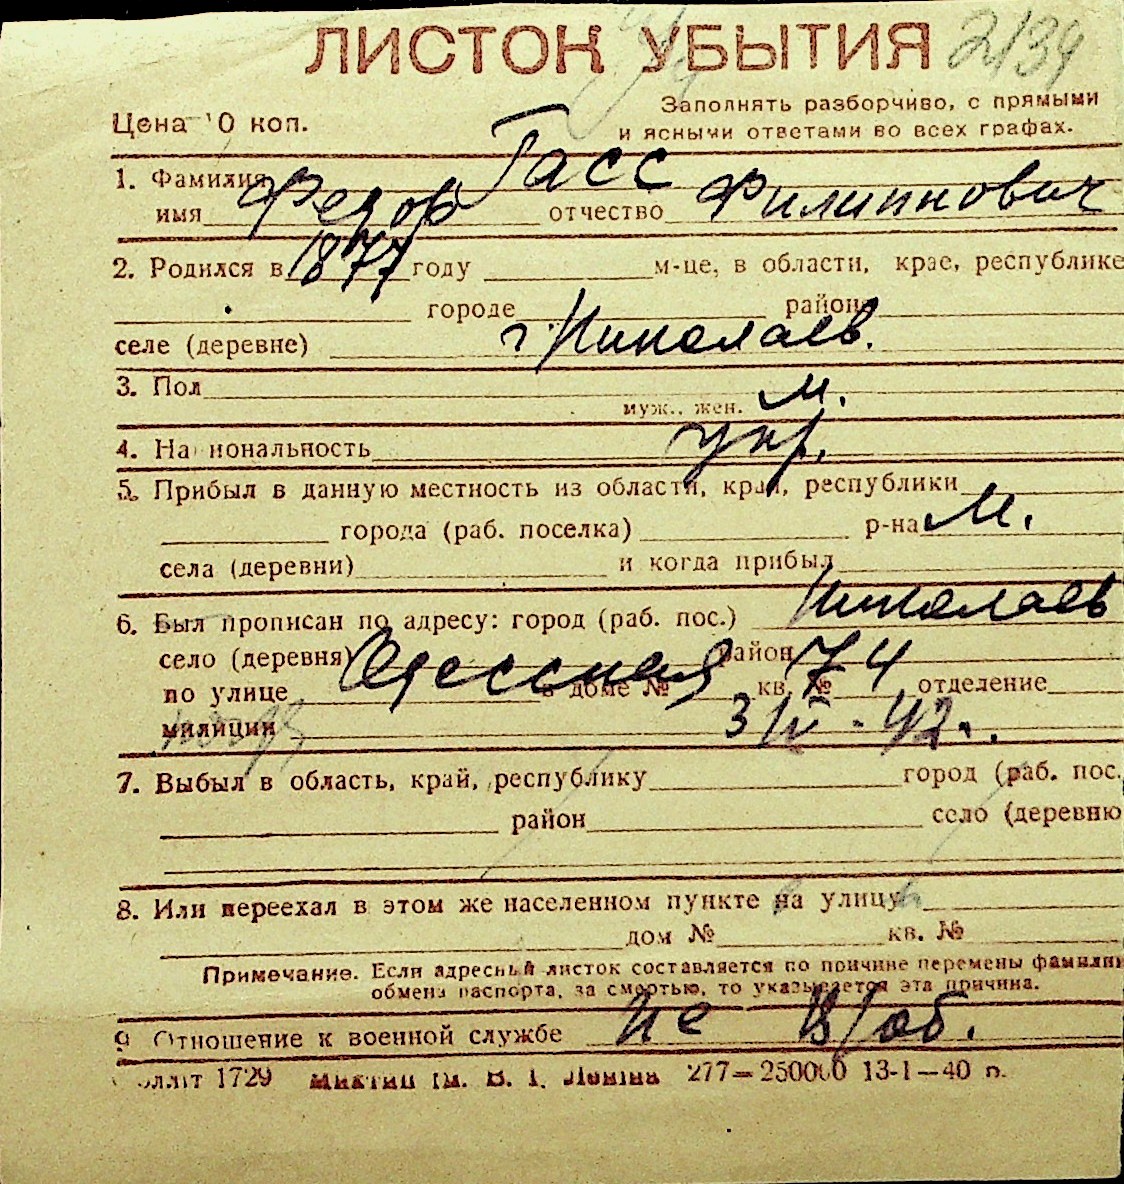 ЛИСТОК УБЫТИЯ 2/39
Заполнять разборчиво, с прямыми
Цена 10 коп. и ясными ответами во всех графах.
1. Фамилия Гасс
имя Федор отчество Филиппович
2. Родился в 1877 году м-це, в области, крае, республике
городе районе
селе (деревне) г. Николаев.
3. Пол
муж., жен. м.
4. Национальность укр.
5. Прибыл в данную местность из области, края, республики
города (раб. поселка) р-на М.
села (деревни) и когда прибыл
6. Был прописан по адресу: город (раб. пос.) Николаев
село (деревня) район
по улице Одесская в доме № кв. № 74 отделение
милиции 3/IV - 42.
7. Выбыл в область, край, республику город (раб. пос.
район село (деревню
8. Или переехал в этом же населенном пункте на улицу
дом № кв. №
Примечание. Если адресный листок составляется по причине перемены фамилии
обмена паспорта, за смертью, то указывается эта причина.
9 Отношение к военной службе не в/об.
1729 277—250000 13-1—40 п.